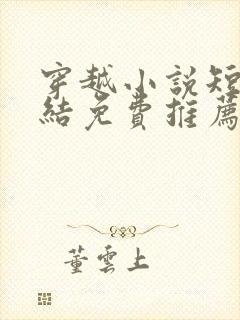 穿越小說短
結免費推薦
董雲上